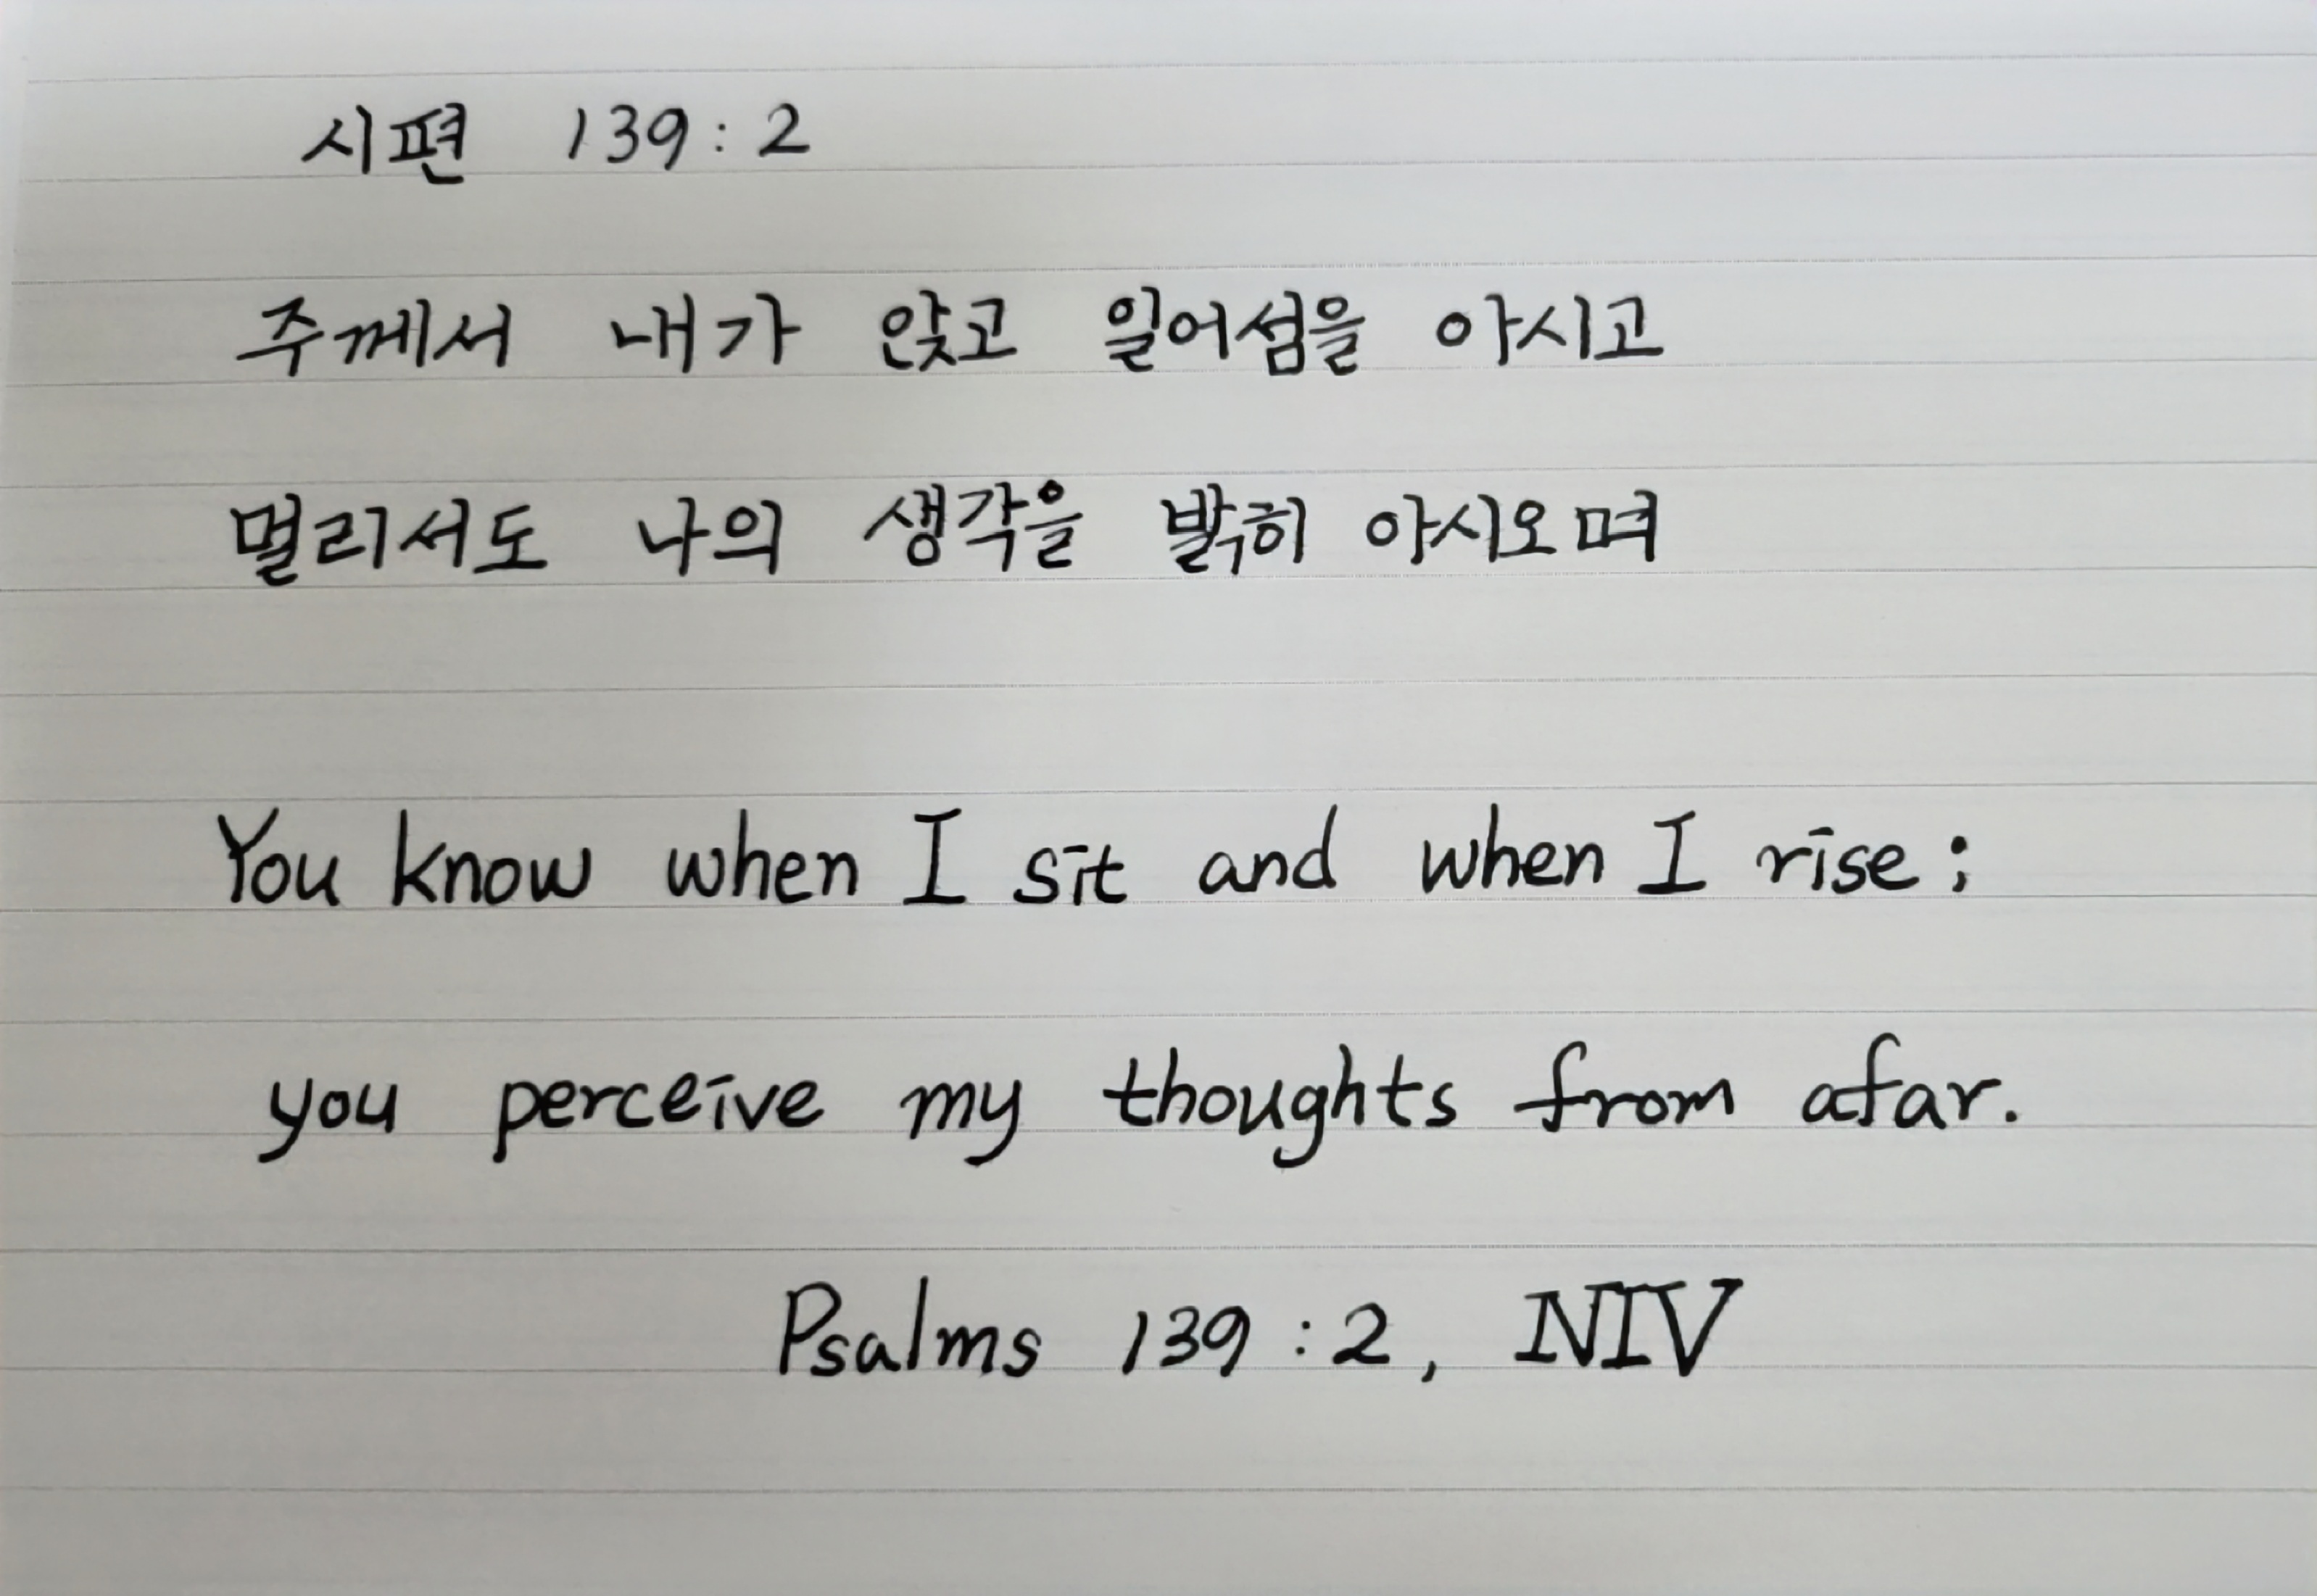 시편 139:2
주께서 내가 앉고 일어섬을 아시고
멀리서도 나의 생각을 밝히 아시오며
You know when I sit and when I rise;
you perceive my thoughts from afar.
Psalms 139:2, NIV